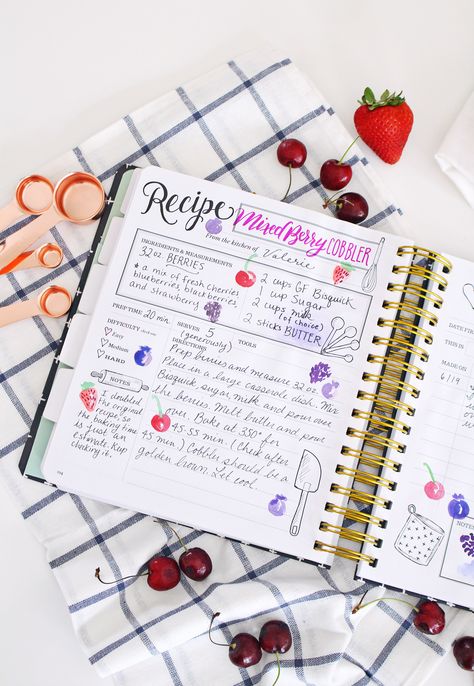 Recipe
Mixed Berry COBBLER
From the kitchen of Valerie
INGREDIENTS & MEASUREMENTS
32 oz. BERRIES
* a mix of fresh cherries
blueberries, blackberries
and strawberry
2 cups GF Bisquick
1 cup Sugar
2 cups milk
(of choice)
2 sticks BUTTER
PREP TIME 20 min.
SERVES 5
(generously)
TOOLS
DIFFICULTY (check one)
Easy
Medium
HARD
DIRECTIONS
Prep berries and measure 32 oz.
Place in a large casserole dish. Mix
Bisquick, sugar, milk, and pour over
the berries. Melt butter and pour
over. Bake at 350° for
45-55 min. (Check after
45 min.) Cobbler should be a
golden brown. Let cool.
NOTES
* I doubled
the original
recipe so
the baking time
is just an
estimate. Keep
checking it.
DATE
THIS IS
MADE
6/9
NOTES